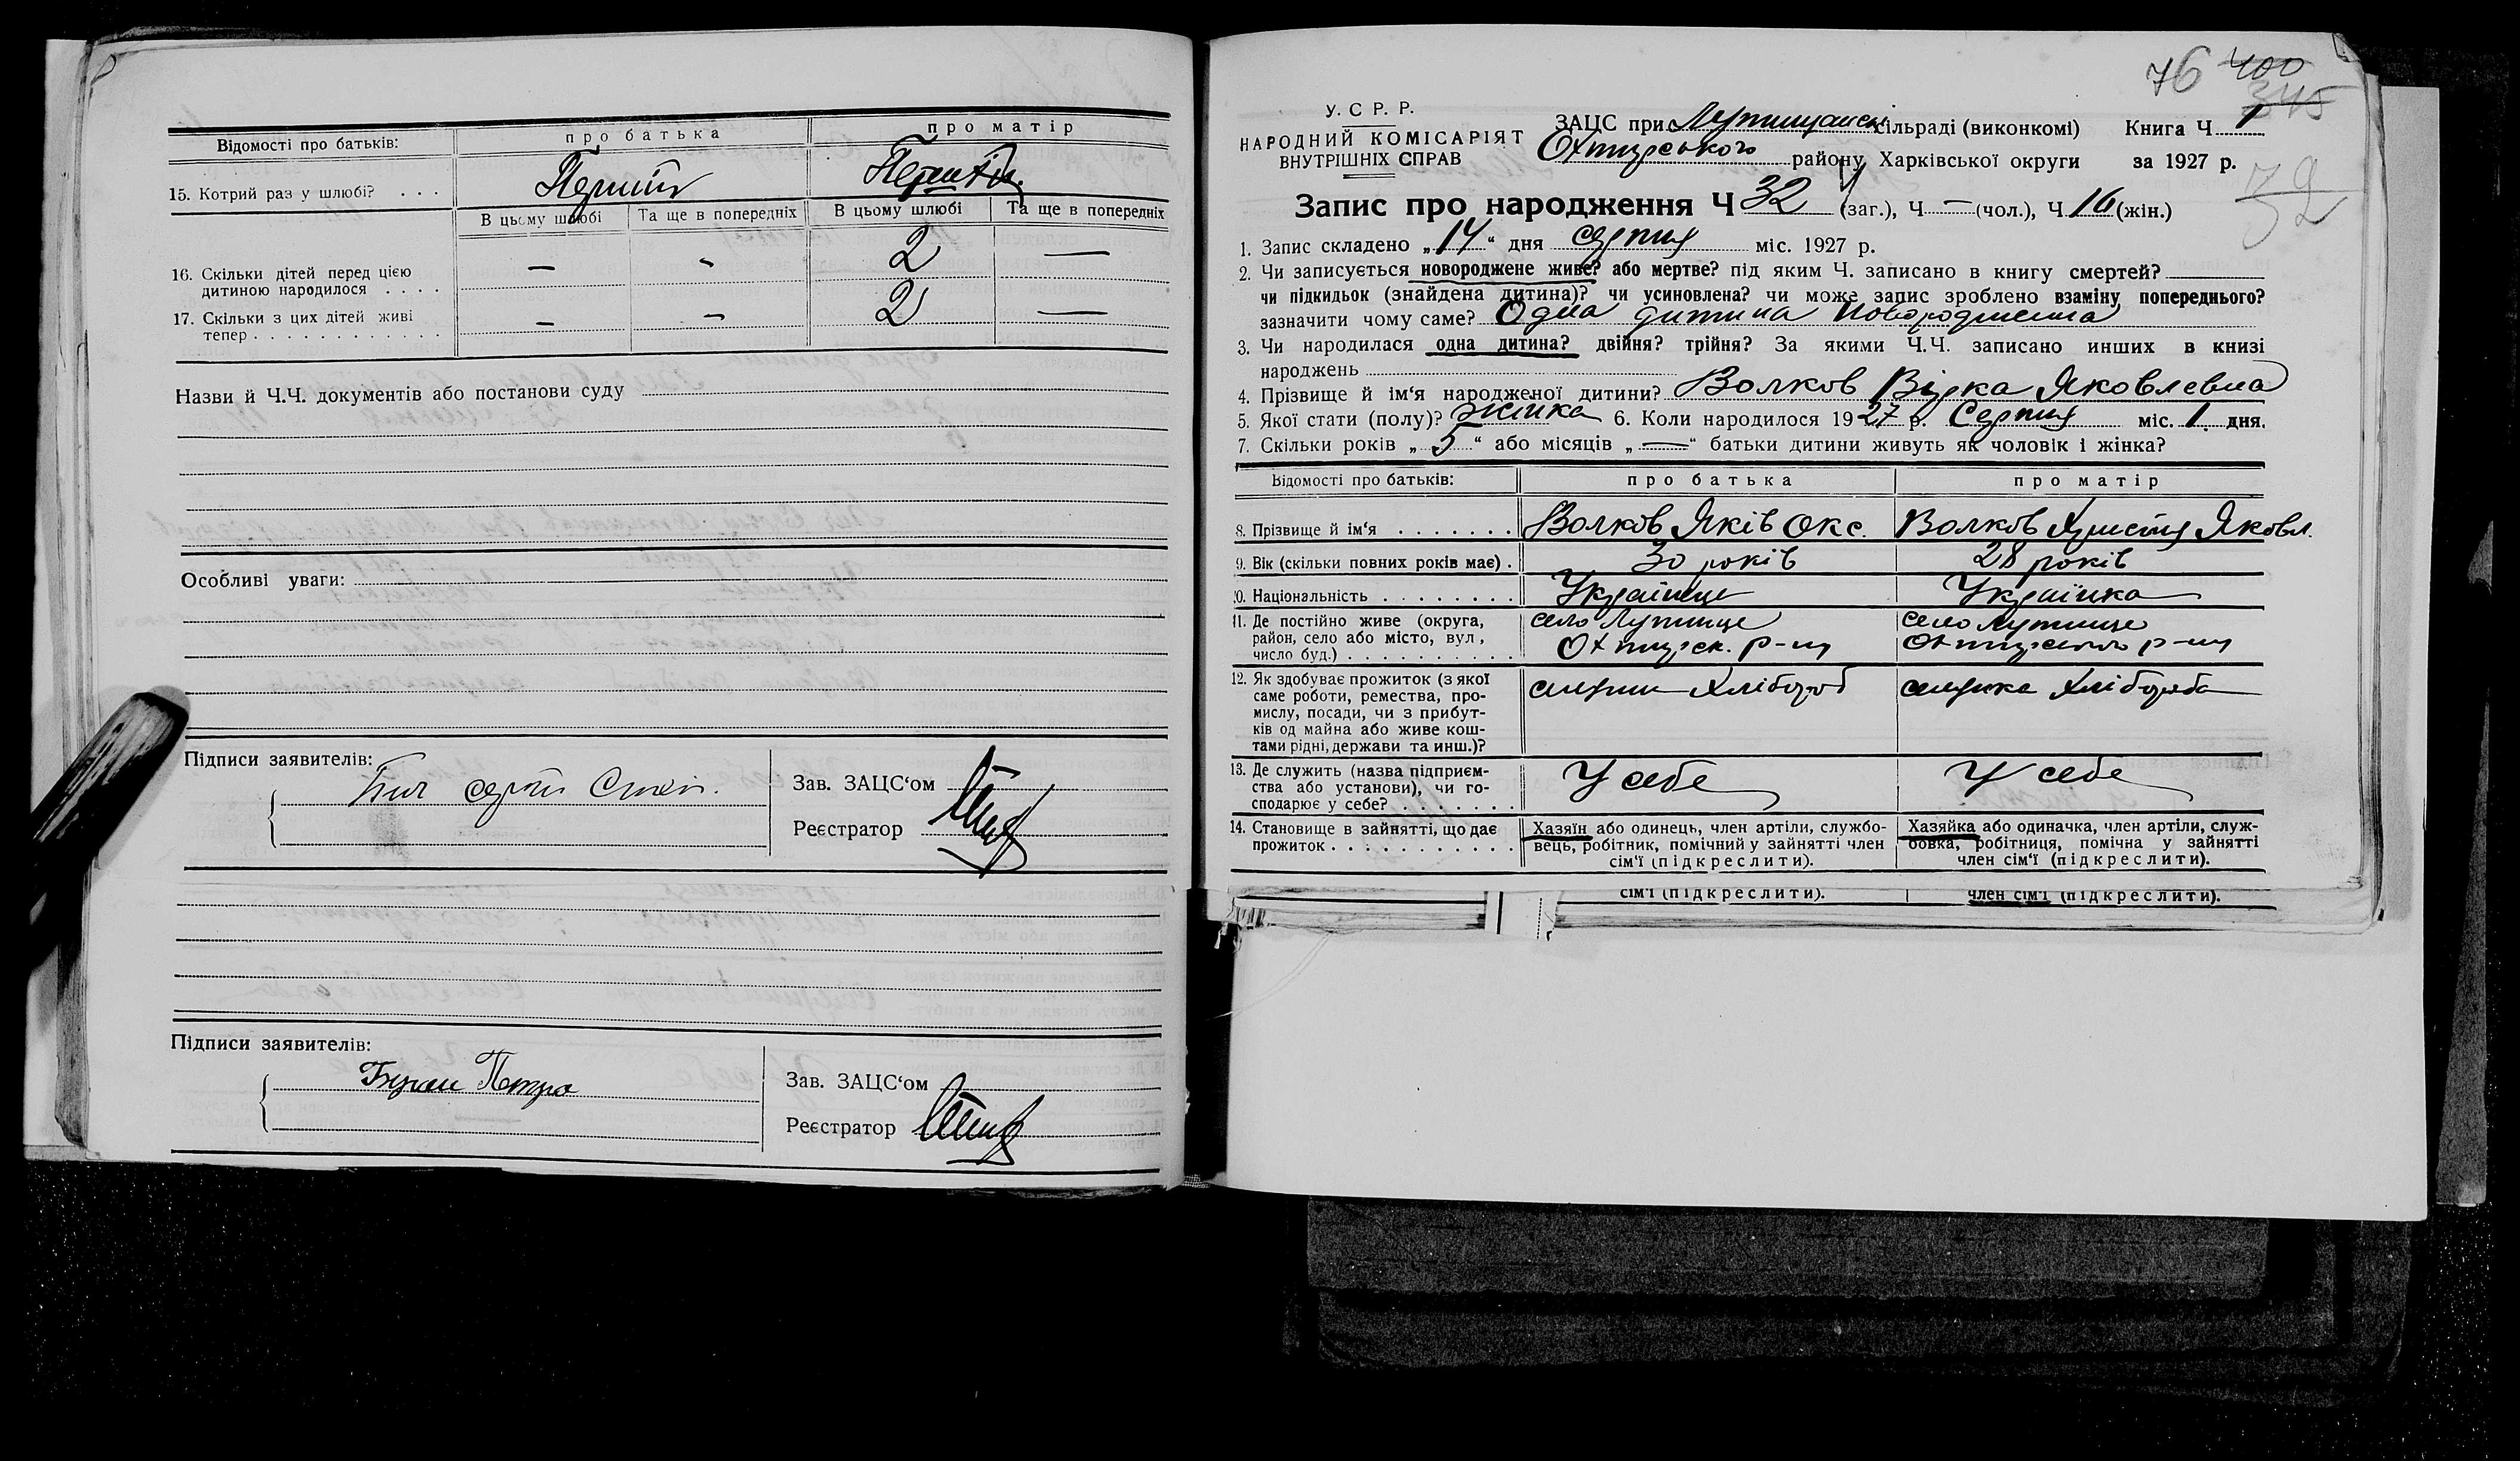 Відомості про батьків:
про батька
про матір
15. Котрий раз у шлюбі? . . .
Перший
В цьому шлюбі
Та ще в попередніх
В цьому шлюбі
Та ще в попередніх
16. Скільки дітей перед цією
дитиною народилося . . . .
— - 2 —
17. Скільки з цих дітей живі
тепер . . . . . . . . . . . .
— - 2 —
Назви й Ч.Ч. документів або постанови суду
Особливі уваги:
Підписи заявителів:
Зав. ЗАЦС‘ом
Реєстратор
Підписи заявителів:
Петро
Зав. ЗАЦС‘ом
Реєстратор
76 400
345
У. С Р. Р.
НАРОДНИЙ КОМІСАРІЯТ
ВНУТРІШНІХ СПРАВ
ЗАЦС при сільраді (виконкомі) Книга Ч 1
Охтирського району, Харківської округи за 1927 р.
32
Запис про народження Ч 32 (заг.), Ч — (чол.), Ч 16 (жін.)
1. Запис складено „14“ дня серпня міс. 1927 р.
2. Чи записується новороджене живе? або мертве? під яким Ч. записано в книгу смертей?
чи підкидьок (знайдена дитина)? чи усиновлена? чи може запис зроблено взаміну попереднього?
зазначити чому саме? Одна дитина новороджена
3. Чи народилася одна дитина? двійня? трійня? За якими Ч.Ч. записано инших в книзі
народжень
4. Прізвище й ім‘я народженої дитини? Волков Вірка Яковлевна
5. Якої стати (полу)? жінка 6. Коли народилося 1927 р. Серпня міс. 1 дня.
7. Скільки років „5“ або місяців „—“ батьки дитини живуть як чоловік і жінка?
Відомості про батьків:
про батька
про матір
8. Прізвище й ім‘я . . . . . . .
Волков Яків Окс.
Волков Христя Яковл.
9. Вік (скільки повних років має) .
30 років
28 років
10. Національність . . . . . . . .
Українець
Українка
11. Де постійно живе (округа,
район, село або місто, вул,
число буд.) . . . . . . . . . .
село Лутище
Охтирск. р-ну
село Лутище
Охтирського р-ну
12. Як здобуває прожиток (з якої
саме роботи, ремества, про-
мислу, посади, чи з прибут-
ків од майна або живе кош-
тами рідні, держави та инш.)?
селянин хлібороб
селянка хліборобка
13. Де служить (назва підприєм-
ства або установи), чи го-
сподарює у себе? . . . . . . .
У себе
У себе
14. Становище в зайнятті, що дає
прожиток . . . . . . . . . . .
Хазяїн або одинець, член артіли, службо-
вець, робітник, помічний у зайнятті член
сім‘ї (підкреслити).
Хазяйка або одиначка, член артіли, служ-
бовка, робітниця, помічна у зайнятті
член сім‘ї (підкреслити).
сім‘ї (підкреслити).
член сім‘ї (підкреслити).